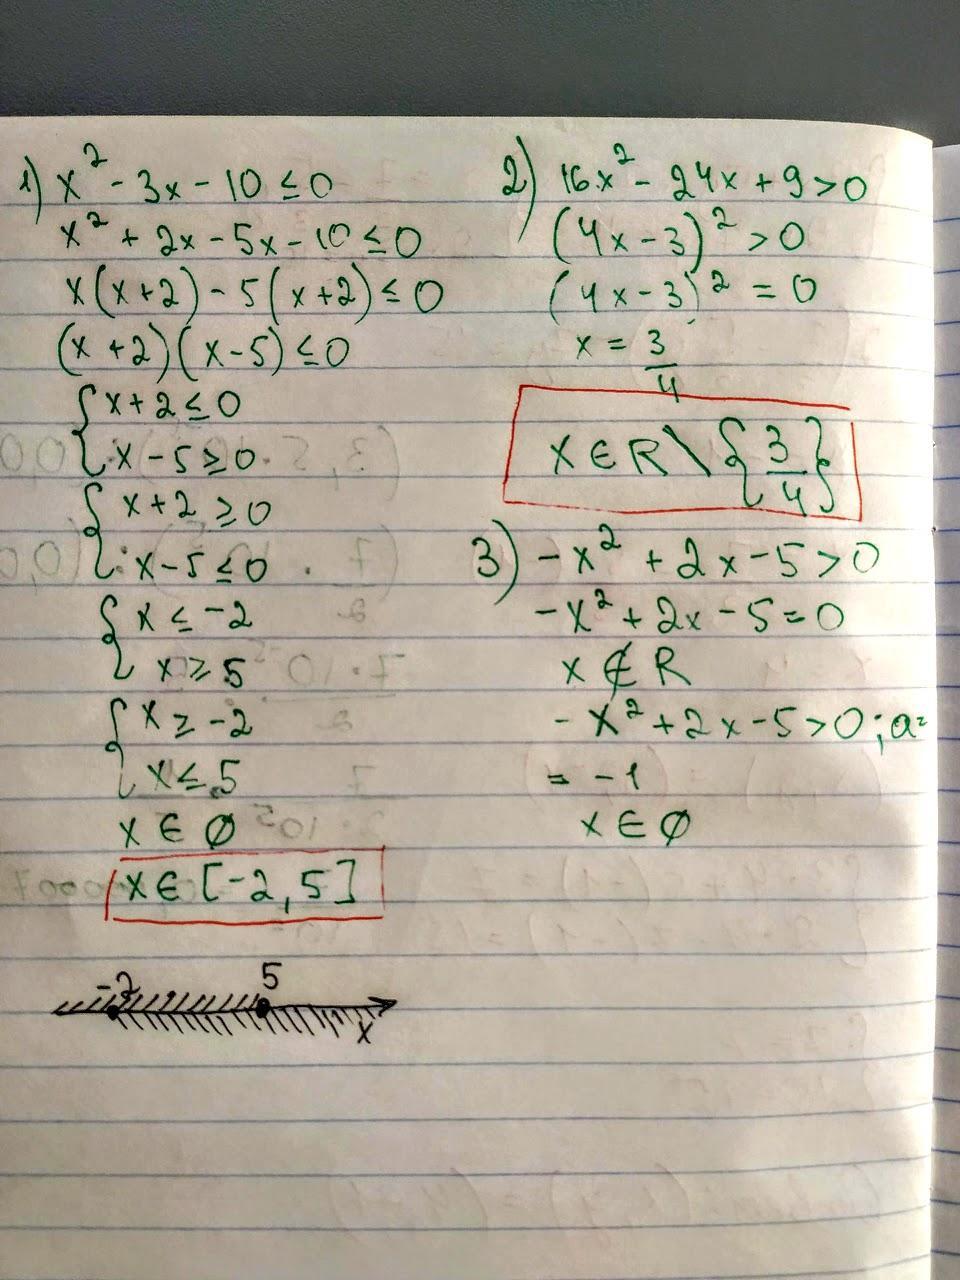 1) x² - 3x - 10 ≤ 0
x² + 2x - 5x - 10 ≤ 0
x(x+2) - 5(x+2) ≤ 0
(x+2)(x-5) ≤ 0
{ x+2 ≤ 0
x - 5 ≥ 0
{ x+2 ≥ 0
x-5 ≤ 0
{ x ≤ -2
x ≥ 5
{ x ≥ -2
x ≤ 5
x ∈ ∅
x ∈ [-2, 5]
-2 5
x
2) 16x² - 24x + 9 > 0
(4x-3)² > 0
(4x-3)² = 0
x = 3/4
x ∈ R \ {3/4}
3) -x² + 2x - 5 > 0
-x² + 2x - 5 = 0
x ∉ R
-x² + 2x - 5 > 0 ; a =
= -1
x ∈ ∅